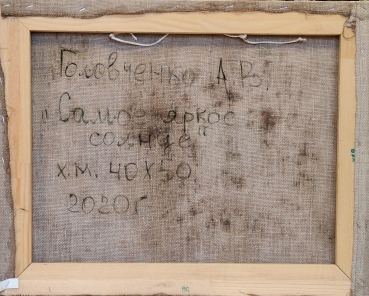 Головченко А.В.
"Самое яркое
солнце"
х.м. 40х50.
2020г